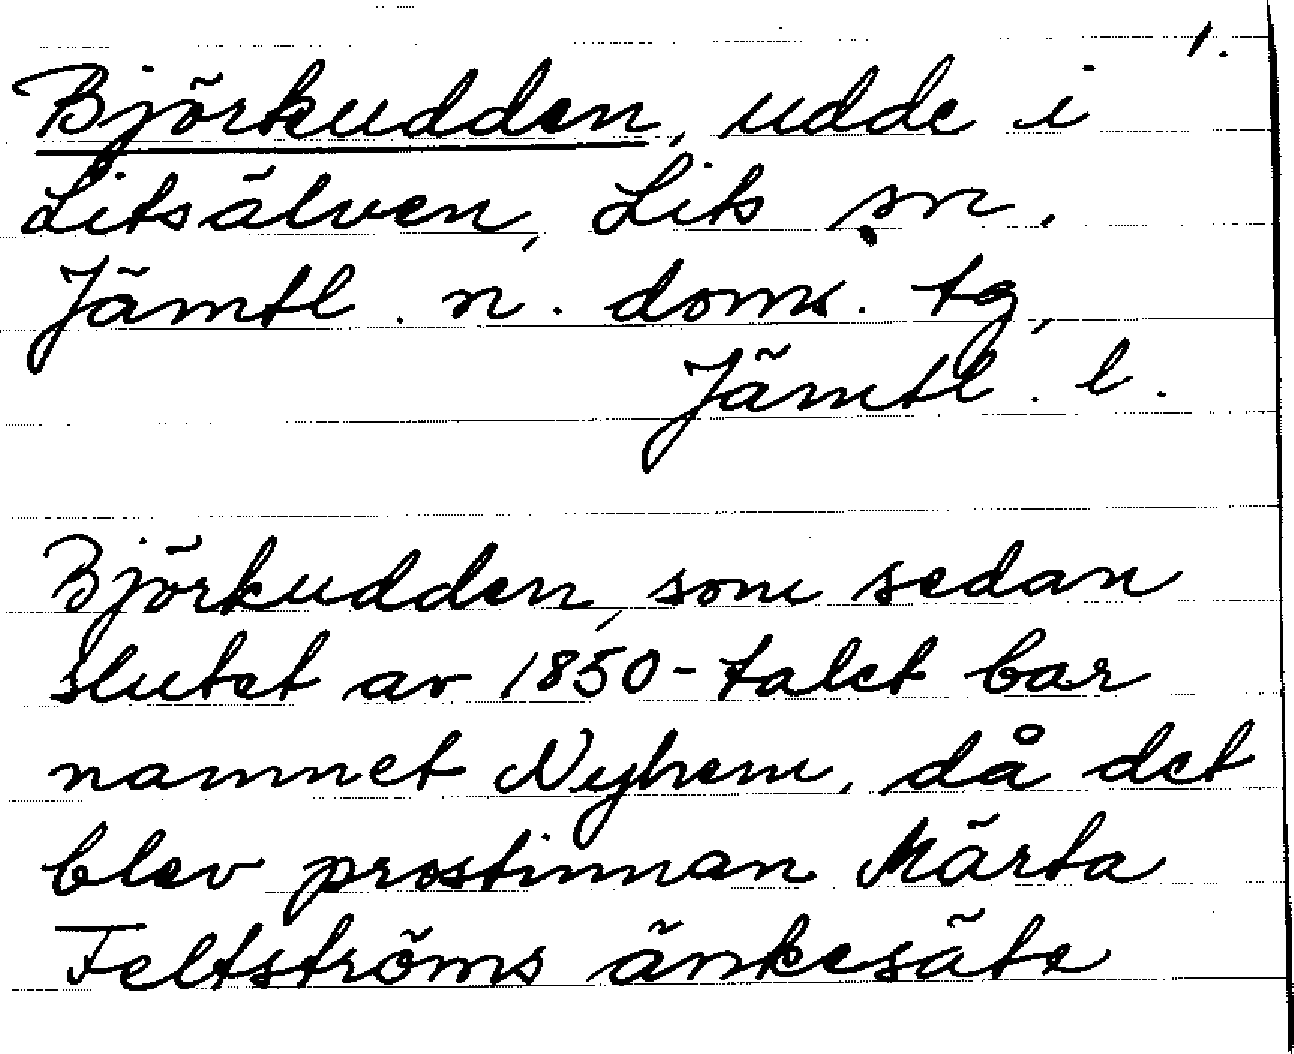 1.
Björkudden, udde i
Litsälven, Lits sn.
Jämtl. n. doms. tg,
Jämtl. l.
Björkudden, som sedan
slutet av 1850-talet bar
namnet Nyhem, då det
blev prostinnan Märta
Feltströms änkesäte